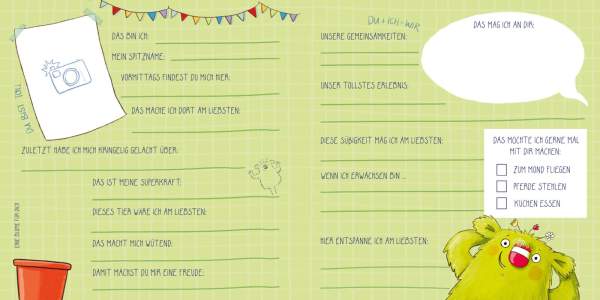 DAS BIN ICH:
MEIN SPITZNAME:
VORMITTAGS FINDEST DU MICH HIER:
DAS MACHE ICH DORT AM LIEBSTEN:
DU BIST TOLL
ZULETZT HABE ICH MICH KRINGELIG GELACHT ÜBER:
DAS IST MEINE SUPERKRAFT:
DIESES TIER WÄRE ICH AM LIEBSTEN:
DAS MACHT MICH WÜTEND:
DAMIT MACHST DU MIR EINE FREUDE:
EINE BLUME FÜR DICH
DU + ICH = WIR
UNSERE GEMEINSAMKEITEN:
UNSER TOLLSTES ERLEBNIS:
DIESE SÜßIGKEIT MAG ICH AM LIEBSTEN:
WENN ICH ERWACHSEN BIN ...
HIER ENTSPANNE ICH AM LIEBSTEN:
DAS MAG ICH AN DIR:
DAS MÖCHTE ICH GERNE MAL
MIT DIR MACHEN:
ZUM MOND FLIEGEN
PFERDE STEHLEN
KUCHEN ESSEN